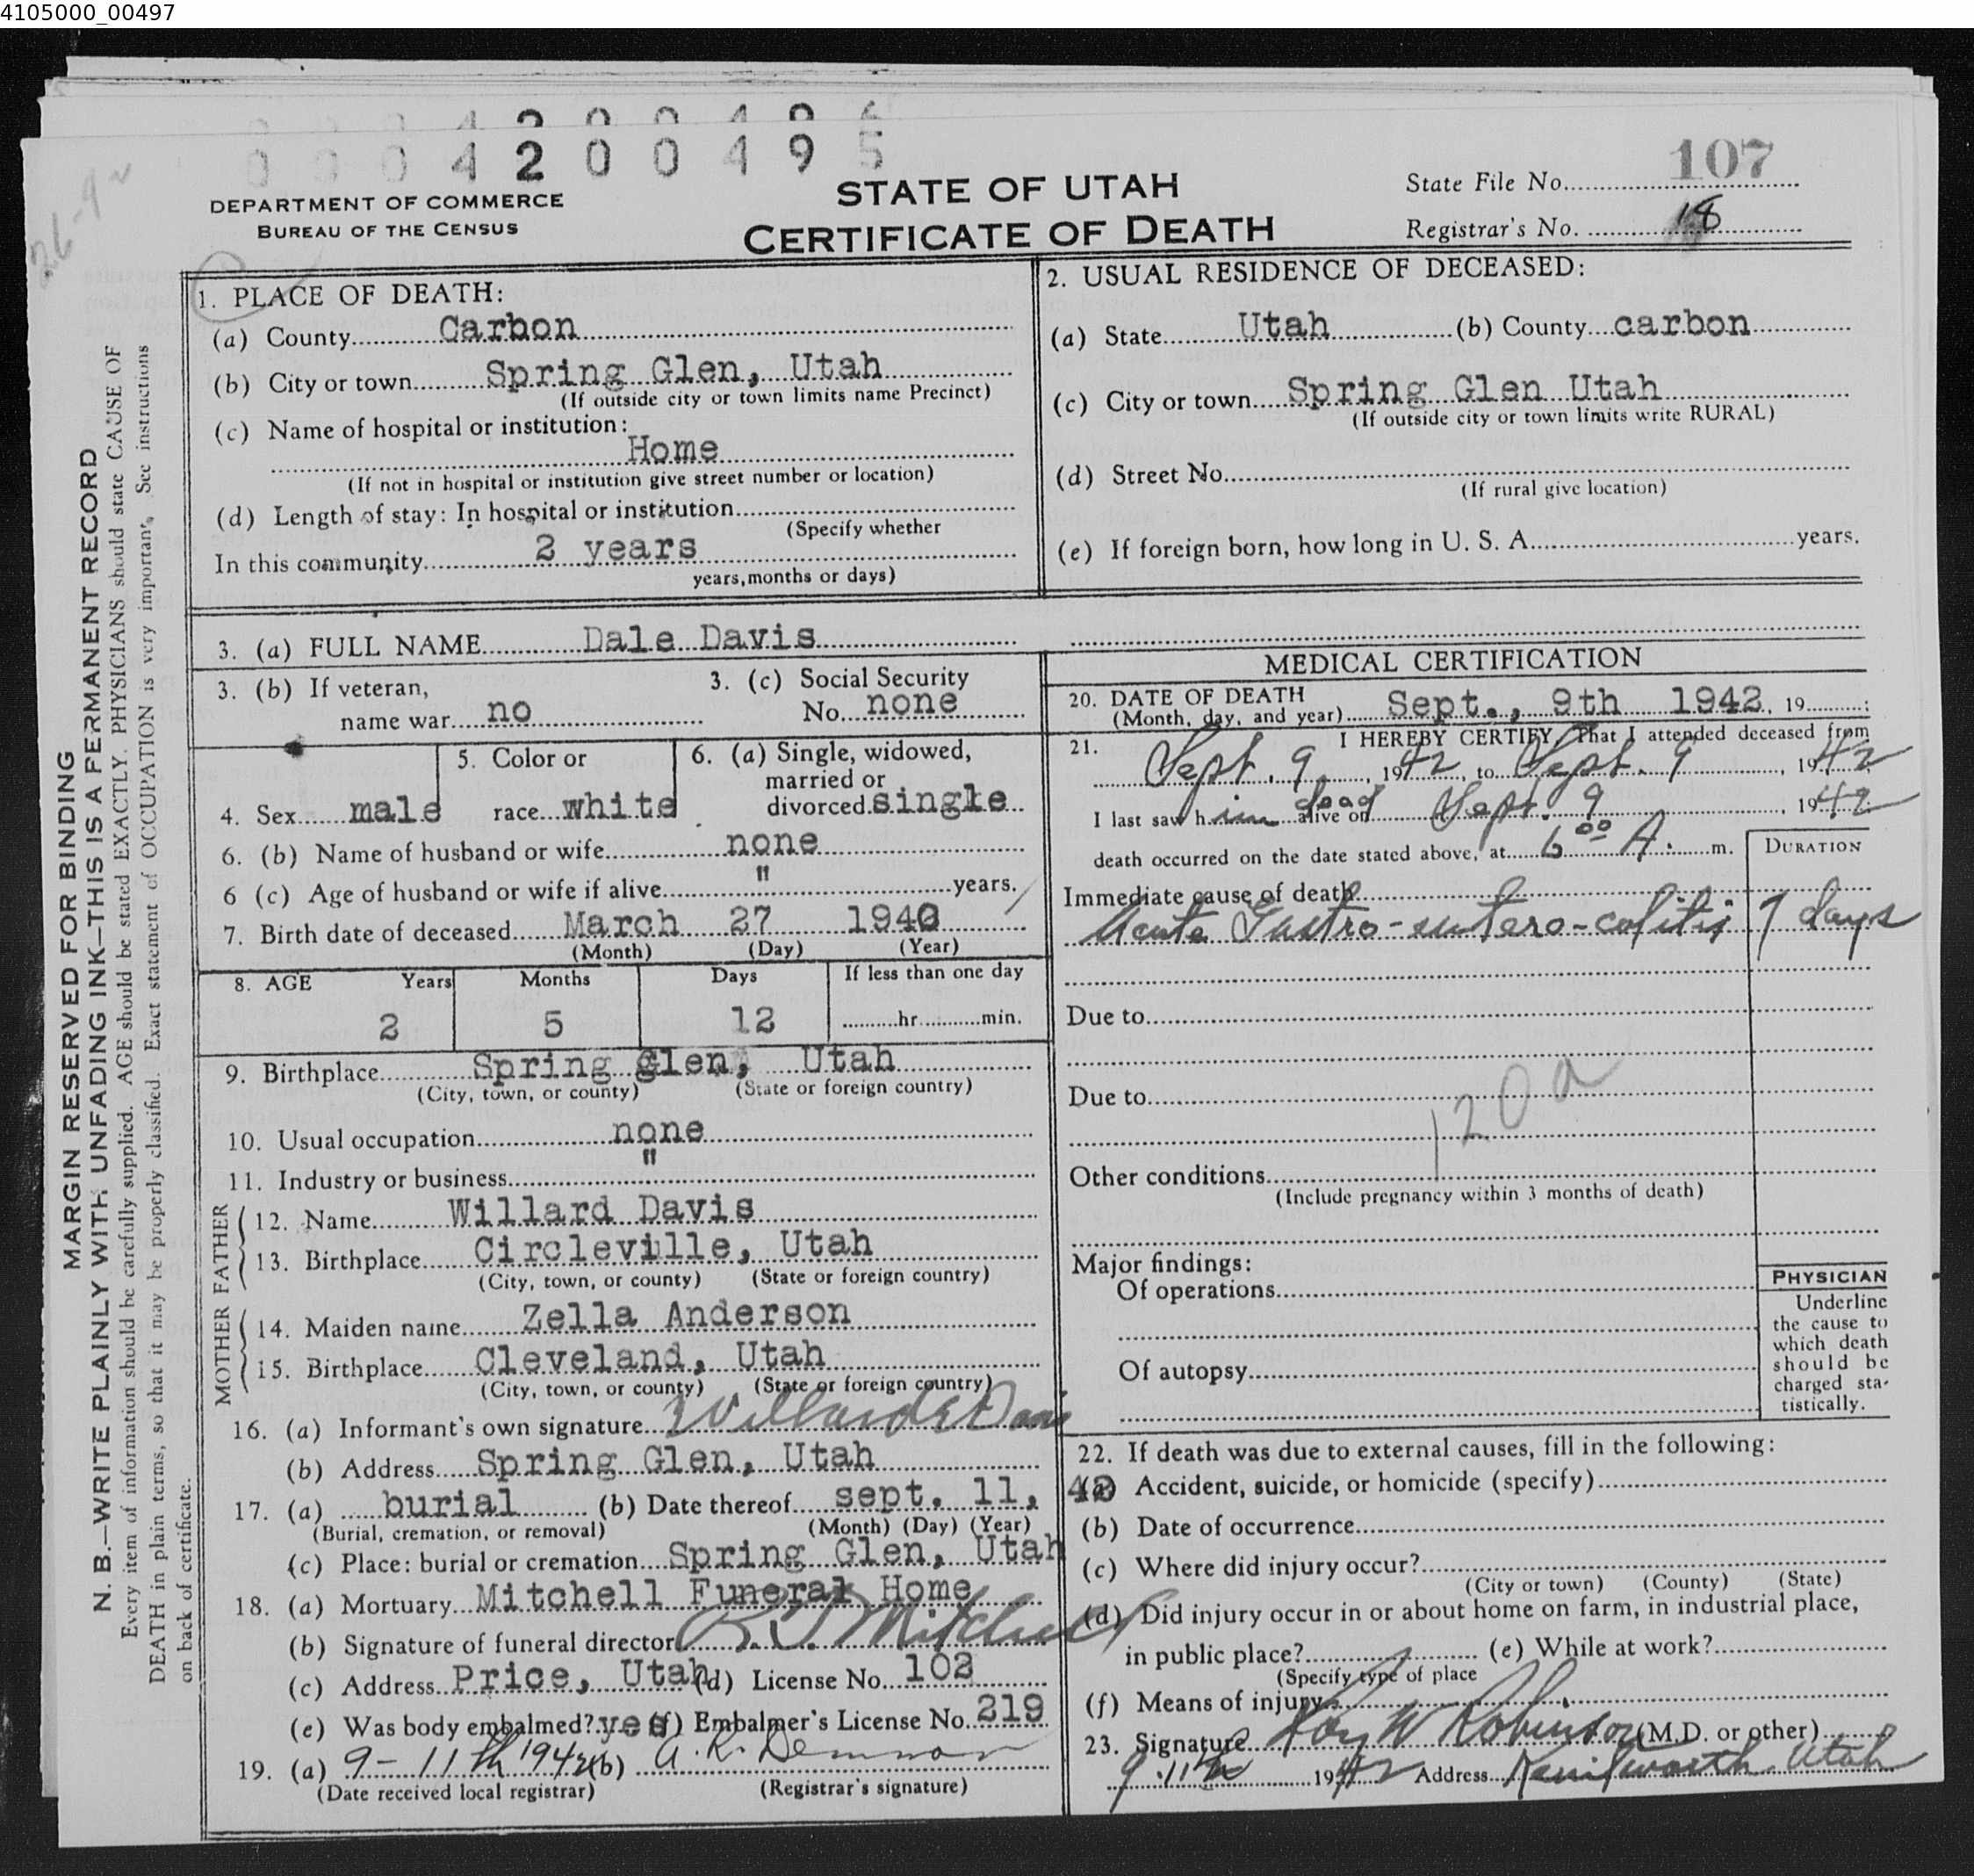 4105000_00497
0 0 0 4 2 0 0 4 9 5
107
DEPARTMENT OF COMMERCE
BUREAU OF THE CENSUS
STATE OF UTAH
CERTIFICATE OF DEATH
State File No.
Registrar's No. 18
MARGIN RESERVED FOR BINDING
N. B.—WRITE PLAINLY WITH UNFADING INK—THIS IS A PERMANENT RECORD
Every item of information should be carefully supplied. AGE should be stated EXACTLY. PHYSICIANS should state CAUSE OF
DEATH in plain terms, so that it may be properly classified. Exact statement of OCCUPATION is very important. See instructions
on back of certificate.
1. PLACE OF DEATH:
(a) County Carbon
(b) City or town Spring Glen, Utah
(If outside city or town limits name Precinct)
(c) Name of hospital or institution:
Home
(If not in hospital or institution give street number or location)
(d) Length of stay: In hospital or institution
(Specify whether
In this community 2 years
years, months or days)
2. USUAL RESIDENCE OF DECEASED:
(a) State Utah (b) County carbon
(c) City or town Spring Glen Utah
(If outside city or town limits write RURAL)
(d) Street No.
(If rural give location)
(e) If foreign born, how long in U. S. A. years.
3. (a) FULL NAME Dale Davis
3. (b) If veteran,
name war no
3. (c) Social Security
No. none
4. Sex male
5. Color or
race white
6. (a) Single, widowed,
married or
divorced single
6. (b) Name of husband or wife none
6 (c) Age of husband or wife if alive " years.
7. Birth date of deceased March 27 1940
(Month) (Day) (Year)
8. AGE Years Months Days If less than one day
2 5 12 hr. min.
9. Birthplace Spring glen, Utah
(City, town, or county) (State or foreign country)
10. Usual occupation none
11. Industry or business "
FATHER
12. Name Willard Davis
13. Birthplace Circleville, Utah
(City, town, or county) (State or foreign country)
MOTHER
14. Maiden name Zella Anderson
15. Birthplace Cleveland, Utah
(City, town, or county) (State or foreign country)
16. (a) Informant's own signature Willard E Davis
(b) Address Spring Glen, Utah
17. (a) burial (b) Date thereof sept. 11, 42
(Burial, cremation, or removal) (Month) (Day) (Year)
(c) Place: burial or cremation Spring Glen, Utah
18. (a) Mortuary Mitchell Funeral Home
(b) Signature of funeral director Mitchell
(c) Address Price, Utah (d) License No. 102
(e) Was body embalmed? yes (f) Embalmer's License No. 219
19. (a) 9-11th 1942 (b) A. R. Demman
(Date received local registrar) (Registrar's signature)
MEDICAL CERTIFICATION
20. DATE OF DEATH
(Month, day, and year) Sept., 9th 1942, 19 ;
21. I HEREBY CERTIFY, That I attended deceased from
Sept. 9, 1942, to Sept. 9, 1942
I last saw him dead alive on Sept. 9, 1942
death occurred on the date stated above, at 6 00 A. m.
DURATION
Immediate cause of death
Acute Gastro-entero-colitis 7 days
Due to
Due to
120a
Other conditions
(Include pregnancy within 3 months of death)
Major findings:
Of operations
Of autopsy
PHYSICIAN
Underline
the cause to
which death
should be
charged sta-
tistically.
22. If death was due to external causes, fill in the following:
(a) Accident, suicide, or homicide (specify)
(b) Date of occurrence
(c) Where did injury occur?
(City or town) (County) (State)
(d) Did injury occur in or about home on farm, in industrial place,
in public place? (e) While at work?
(Specify type of place
(f) Means of injury
23. Signature Roy W Robinson (M.D. or other)
9.11th 1942 Address Kenilworth Utah